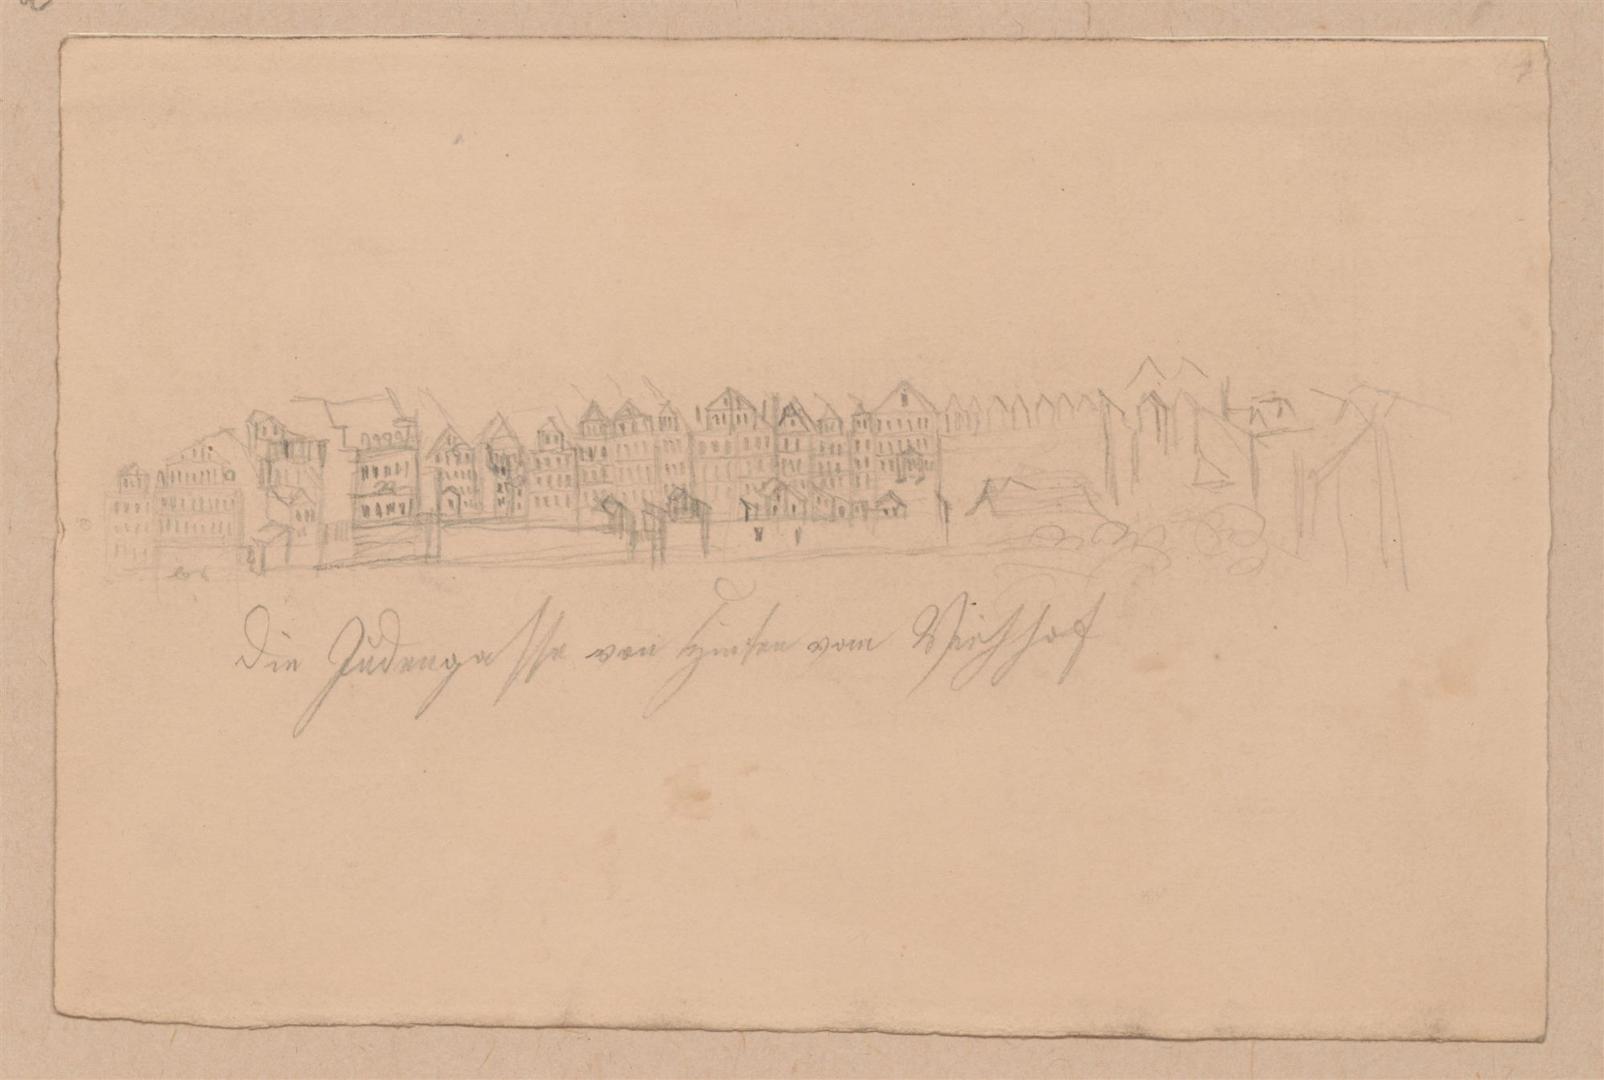 Die Judengasse von Hinten vom Viehhof